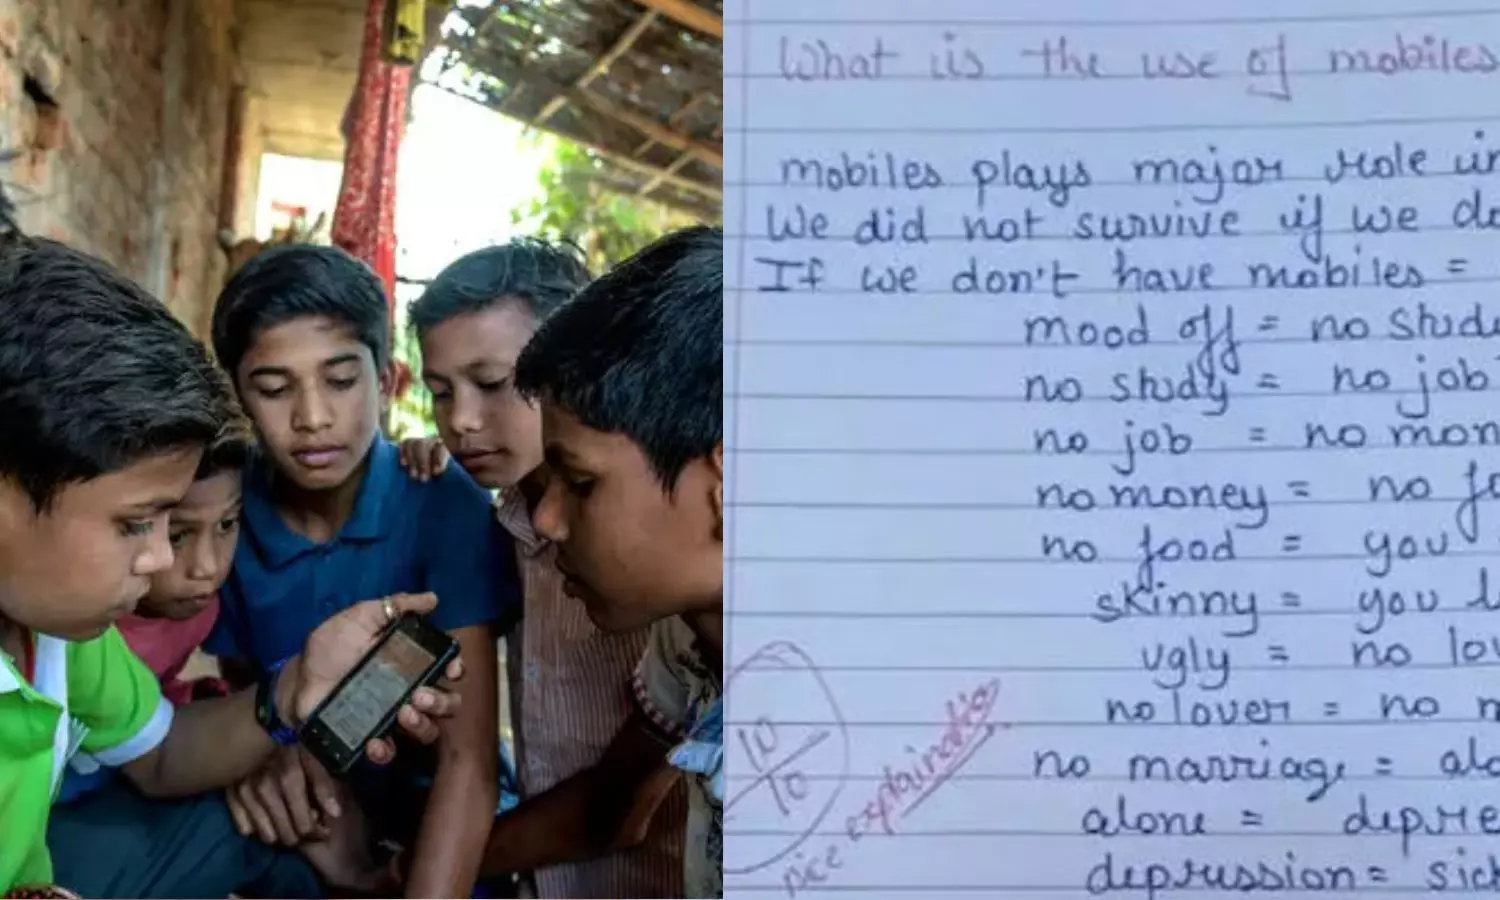 What is the use of mobiles
mobiles plays major role in
We did not survive if we do
If we don't have mobiles =
mood off = no stud
no study = no job
no job = no mon
no money = no fo
no food = you
skinny = you l
ugly = no lov
no lover = no m
no marriage = alo
alone = depre
depression = sick
10/10
nice explaination